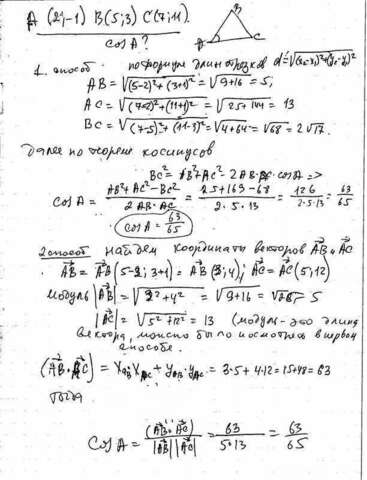 A (2;-1) B(5;3) C(7;11).
cos A?
B
A C
1. способ по формуле длин отрезков d=√(x₂-x₁)²+(y₂-y₁)²
AB = √(5-2)²+(3+1)² = √9+16 = 5,
AC = √(7-2)²+(11+1)² = √25+144 = 13
BC = √(7-5)²+(11-3)² = √4+64 = √68 = 2√17.
далее по теореме косинусов
BC² = AB²+AC²-2AB·AC·cosA =>
cosA = AB²+AC²-BC² / 2AB·AC = 25+169-68 / 2·5·13 = 126 / 2·5·13 = 63/65
cosA = 63/65
2 способ найдем координаты векторов AB и AC
AB = AB (5-2; 3+1) = AB (3;4); AC = AC (5;12)
модуль |AB| = √3²+4² = √9+16 = √25 = 5
|AC| = √5²+12² = 13 (модуль - это длина
вектора, можно было посмотреть в первом
способе.
(AB·AC) = X_AB·X_AC + y_AB·y_AC = 3·5+4·12=15+48=63
тогда
cosA = (AB·AC) / |AB||AC| = 63 / 5·13 = 63/65